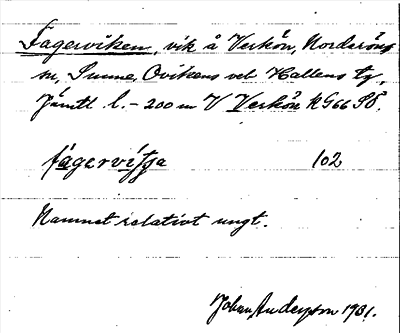 Fagerviken, vik å Verkön, Norderöns
sn, Sunne, Ovikens och Hallens tg,
Jämtl. l. – 200 m V Verkön RG66 SÖ.
fa̲gervi̲ʃʃa 102
Namnet relativt ungt.
Johan Anderzson 1931.